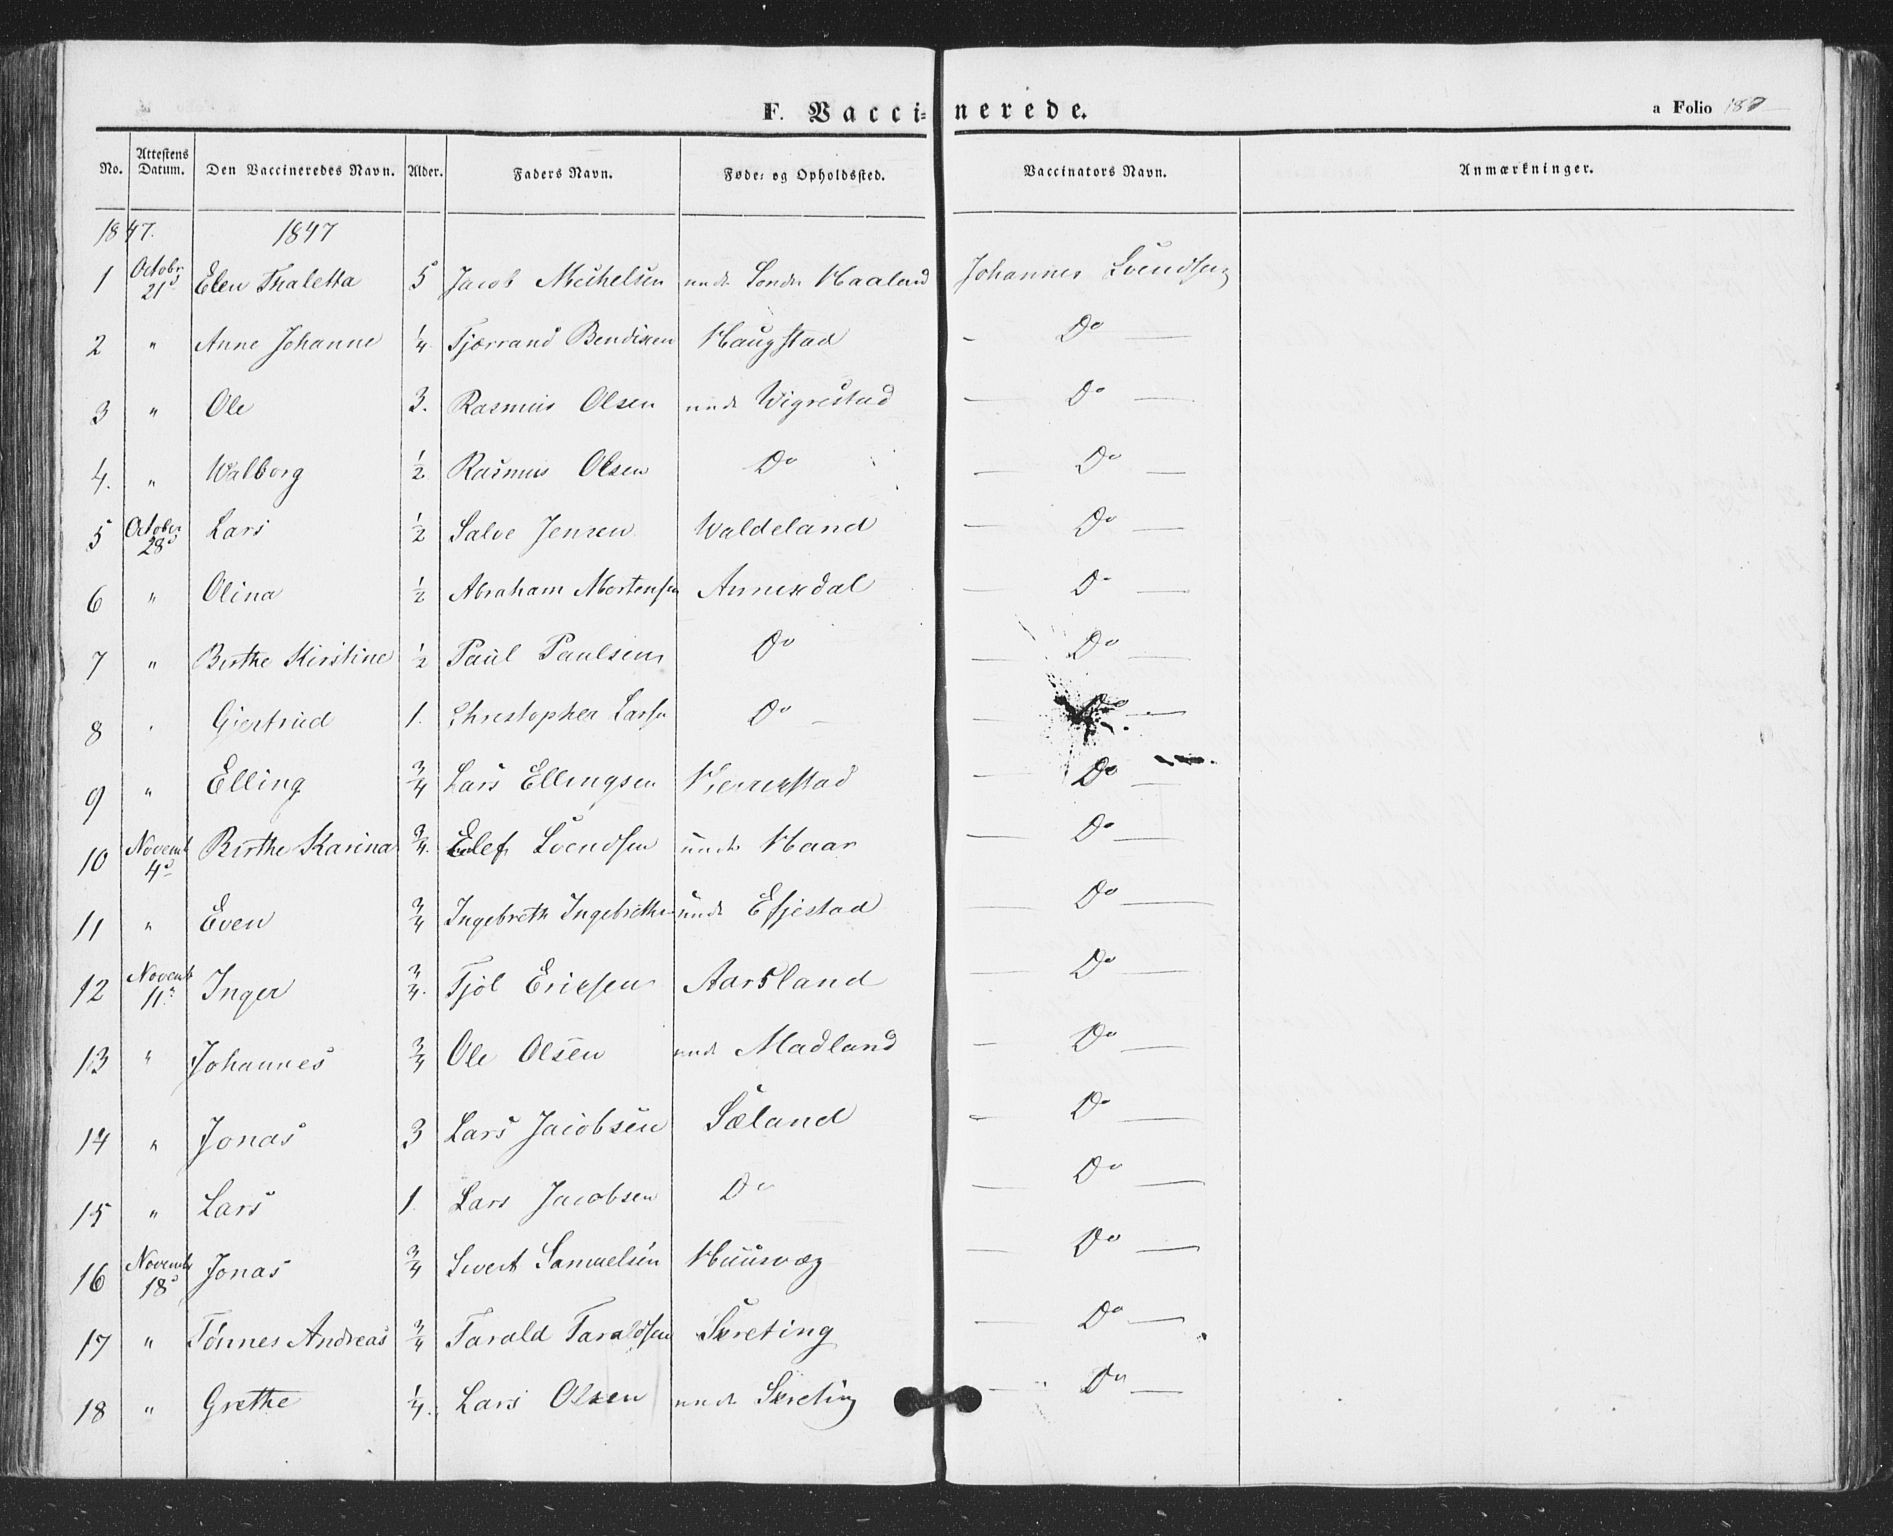 F. Vaccinerede.
a Folio 187
No. Attestens Datum. Den Vaccineredes Navn. Alder. Faders Navn. Føde- og Opholdssted. Vaccinators Navn. Anmærkninger.
1847. 1847
1 Octobr 21d Elen Thaletta 5 Jacob Michelsen unde Søndr Haaland Johannes Svendsen
2 " Anne Johanne 1/4 Tjærrand Bendixen Haugstad - Do -
3 " Ole 3. Rasmus Olsen unde Wigrestad - Do -
4. " Walborg 1/2 Rasmus Olsen Do - Do -
5 October 28d Lars 1/2 Salve Jensen Waldeland - Do -
6 " Olina 1/2 Abraham Mortensen Annexdal - Do -
7 " Birthe Kirstine 1/2 Paul Paulsen Do - Do -
8 " Giertrud 1. Christopher Larsn Do - - Do -
9 " Elling 3/4 Lars Ellingsen - Do -
10 Novemb 4d Birthe Karina 3/4. Elef Svendsen unde Haar - Do -
11 " Even 3/4 Ingebreth Ingebreths unde Efjestad - Do -
12 Novemb 11d Inger 3/4. Tjøl Ericsen Aarsland - Do -
13 " Johannes 3/4 Ole Olsen und Madland - Do -
14 " Jonas 3 Lars Jacobsen Sæland - Do -
15 " Lars 1. Lars Jacobsen Do - Do -
16 Novemb 18d Jonas 3/4 Sivert Samuelsen Huusvæg - Do -
17 " Tønnes Andreas 3/4 Tarald Taraldsen Skreting - Do -
18 " Grethe 1/4. Lars Olsen unde Skreting - Do -